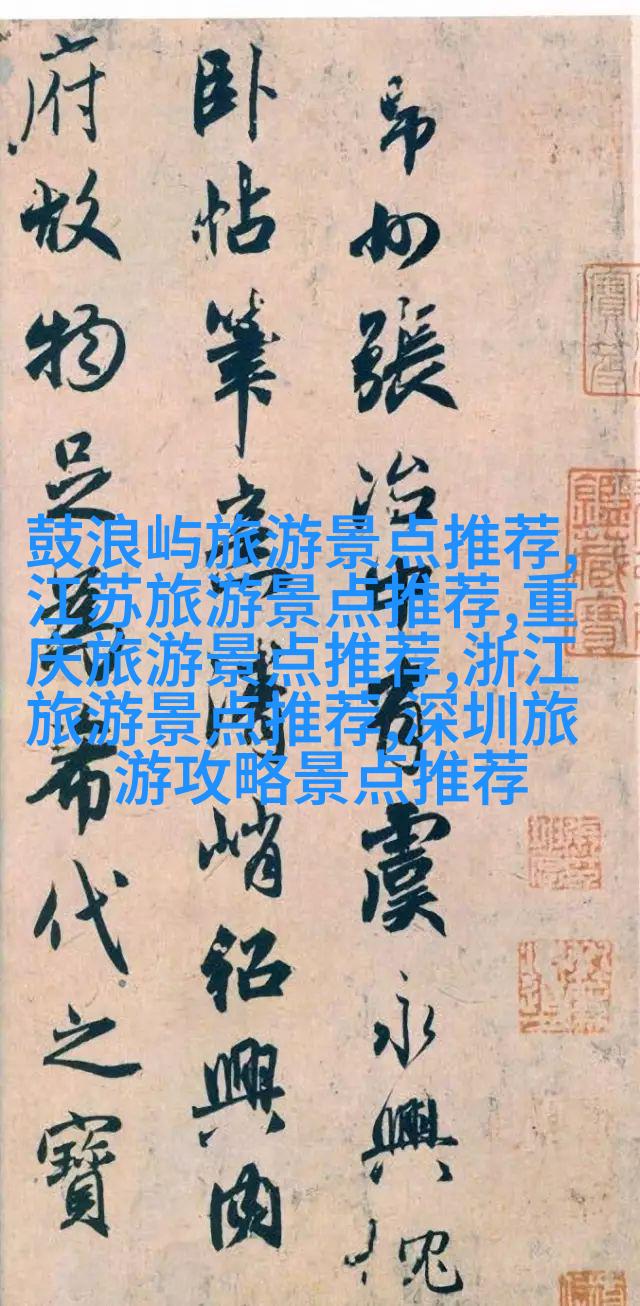 州張治中有虞永興
臥帖筆意峭紹興内
府故物足爲希代之寶
鼓浪屿旅游景点推荐,
江苏旅游景点推荐,重
庆旅游景点推荐,浙江
旅游景点推荐,深圳旅
游攻略景点推荐